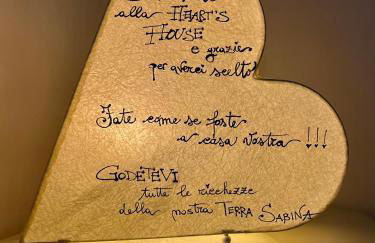 alla HEART'S
HOUSE
e grazie
per averci scelto!
Fate come se foste
a casa vostra !!!
GODETEVI
tutte le ricchezze
della nostra TERRA SABINA